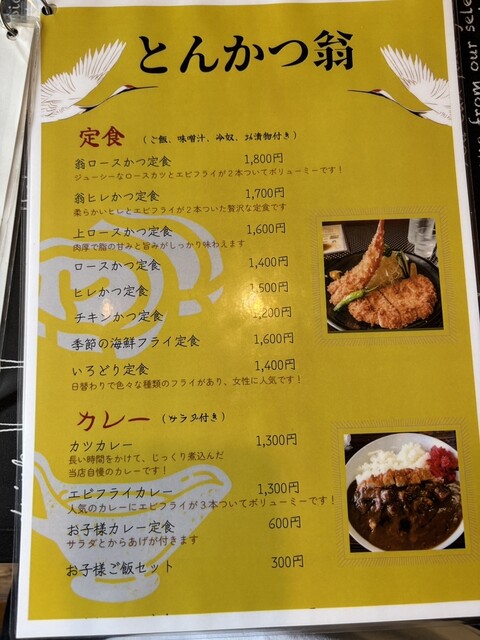 とんかつ翁
定食 (ご飯、味噌汁、冷奴、お漬物付き)
翁ロースかつ定食 1,800円
ジューシーなロースカツとエビフライが2本ついてボリューミーです!
翁ヒレかつ定食 1,700円
柔らかいヒレとエビフライが2本ついた贅沢な定食です
上ロースかつ定食 1,600円
肉厚で脂の甘みと旨みがしっかり味わえます
ロースかつ定食 1,400円
ヒレかつ定食 1,500円
チキンかつ定食 1,200円
季節の海鮮フライ定食 1,600円
いろどり定食 1,400円
日替わりで色々な種類のフライがあり、女性に人気です!
カレー (サラダ付き)
カツカレー 1,300円
長い時間をかけて、じっくり煮込んだ
当店自慢のカレーです!
エビフライカレー 1,300円
人気のカレーにエビフライが3本ついてボリューミーです!
お子様カレー定食 600円
サラダとからあげが付きます
お子様ご飯セット 300円
from our sele